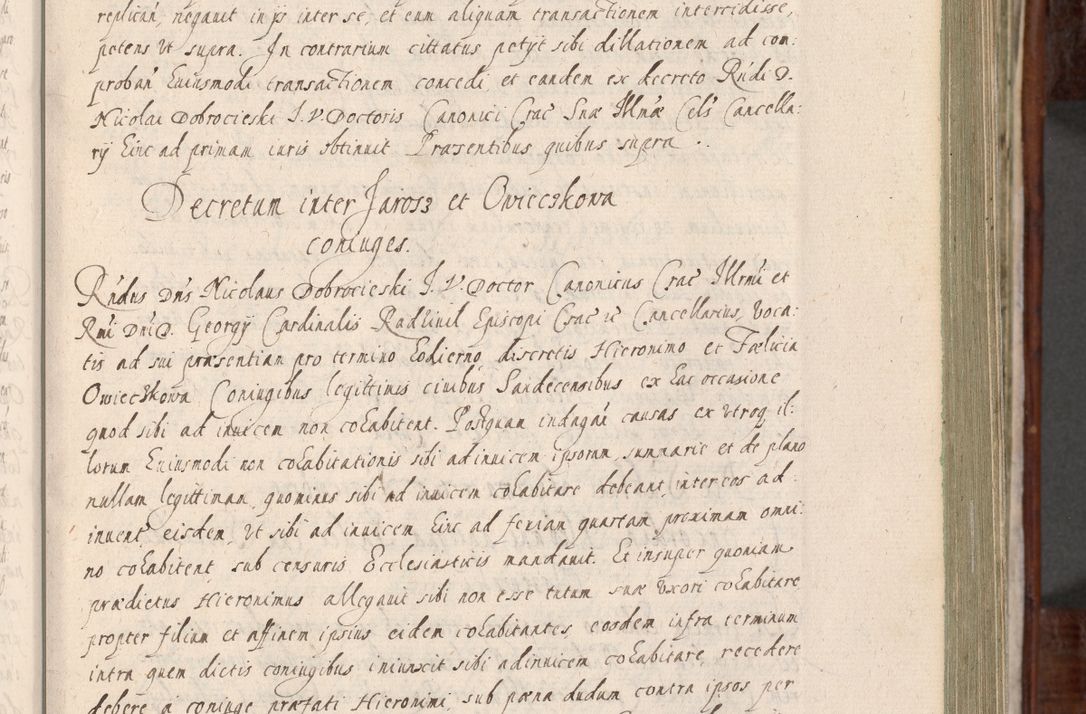 replicań, negauit in ip̄ inter se, et eum aliquam transactionem intercidisse,
petens vt supra. In contrarium cittatus petyt sibi dillationem ad com:
probań huiusmodi transactionem concedi, et eandem ex decreto Rńdi D.
Nicolai Dobrocieski J. V. Doctoris Canonici Crac̄ Suæ Illmæ Cels̄ Cancella:
rÿ hinc ad primam iuris obtinuit Præsentibus quibus supra ..
Decretum inter Jarosz et Owieczkowa
coniuges.
Rńdus Dńs Nicolaus Dobrocieski J. V. Doctor Canonicus Crac̄ Illrmi et
Rmi Dni D. Georgÿ Cardinalis Radziuil Episcopi Crac̄ Cancellarius, voca:
tis ad sui præsentiam pro termino hodierno, discretis Hieronimo et Fælicia
Owieczkowa Coniugibus legittimis ciuibus Sandecensibus ex hac occasione
quod sibi ad inuicem non cohabitent. Postquam indagań causas ex vtroq il:
lorum huiusmodi non cohabitationis sibi adinuicem ipsorum, summarie et de plano
nullam legittimam, quominus sibi ad inuicem cohabitare debeant, inter eos ad
inuenit, eisdem, vt sibi ad inuicem hinc ad feriam quartam proximam omni:
no cohabitent, sub censuris Ecclesiasticis mandauit. Et insuper quoniam
prædictus Hieronimus allegauit sibi non esse tutum suæ vxori cohabitare
propter filium et affinem ipsius eidem cohabitantes, eosdem infra terminum
intra quem dictis coniugibus iniunxit sibi adinuicem cohabitare, recedere
debere a coniuge præfati Hieronimi, sub pæna dudum contra ipsos per